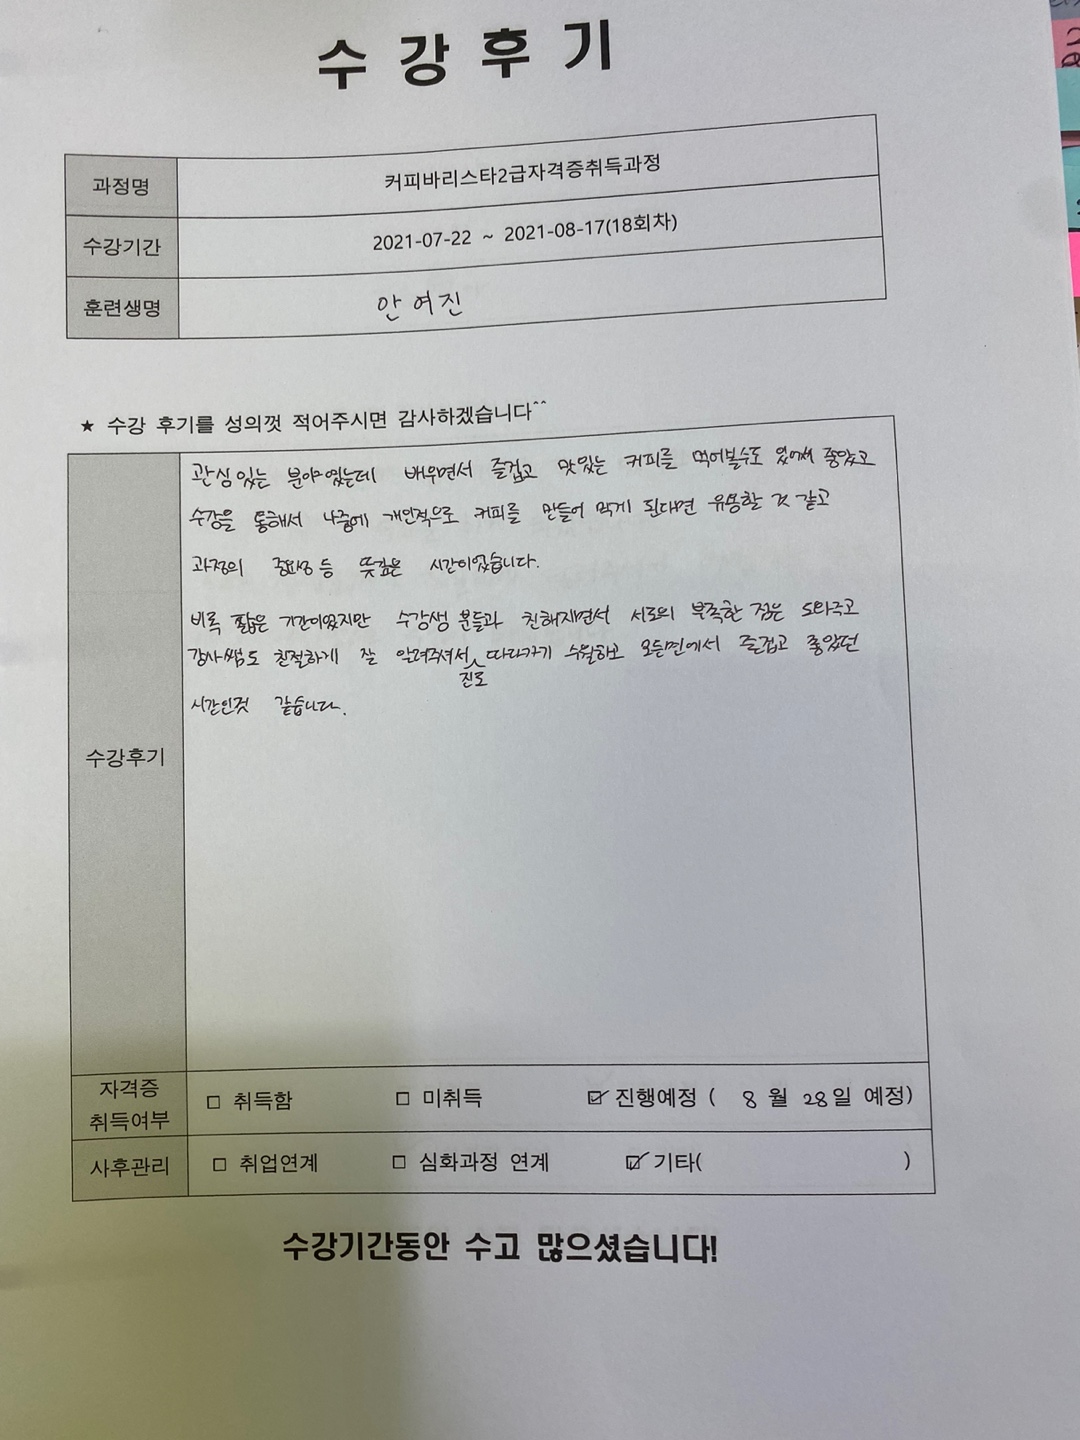 수강후기
과정명 커피바리스타2급자격증취득과정
수강기간 2021-07-22 ~ 2021-08-17(18회차)
훈련생명 안여진
★ 수강 후기를 성의껏 적어주시면 감사하겠습니다^^
수강후기
관심있는 분야였는데 배우면서 즐겁고 맛있는 커피를 먹어볼수도 있어서 좋았고
수강을 통해서 나중에 개인적으로 커피를 만들어 먹게 된다면 유용할 것 같고
과정의 중요성 등 뜻깊은 시간이었습니다.
비록 짧은 기간이였지만 수강생 분들과 친해지면서 서로의 부족한 점은 도와주고
강사쌤도 친절하게 잘 알려주셔서 진도 따라가기 수월하고 모든면에서 즐겁고 좋았던
시간인것 같습니다.
자격증 취득여부 □ 취득함 □ 미취득 ☑ 진행예정 ( 8 월 28일 예정)
사후관리 □ 취업연계 □ 심화과정 연계 ☑ 기타( )
수강기간동안 수고 많으셨습니다!